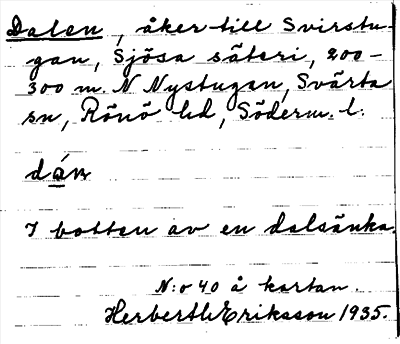 Dalen, åker till Svirstu-
gan, Sjösa säteri, 200-
300 m. N Nystugan, Svärta
sn, Rönö hd, Söderm. l.
I botten av en dalsänka.
N:o 40 å kartan.
Herbert Eriksson 1935.